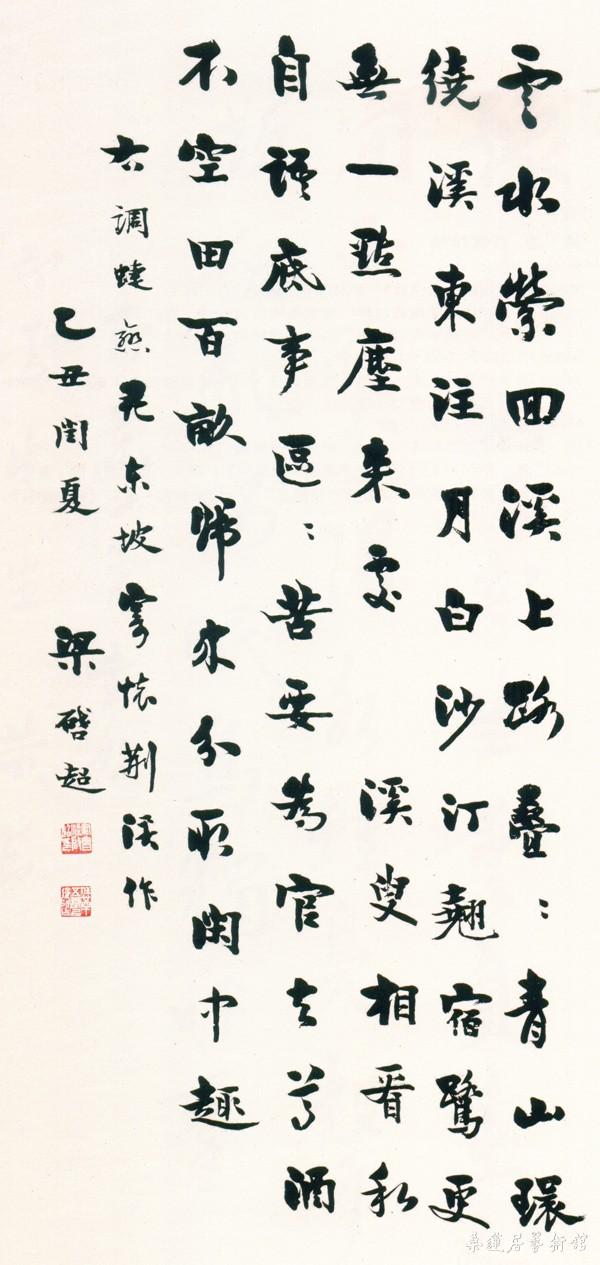 雲水縈回溪上路疊：青山環
繞溪東注月白沙汀翹宿鷺更
無一點塵來處　溪叟相看私
自語底事區：苦要為官去尊酒
不空田百畝歸來分取閑中趣
右調蝶戀花東坡寫懷荊溪作
乙丑閏夏　梁啓超
桑蓮居藝術館